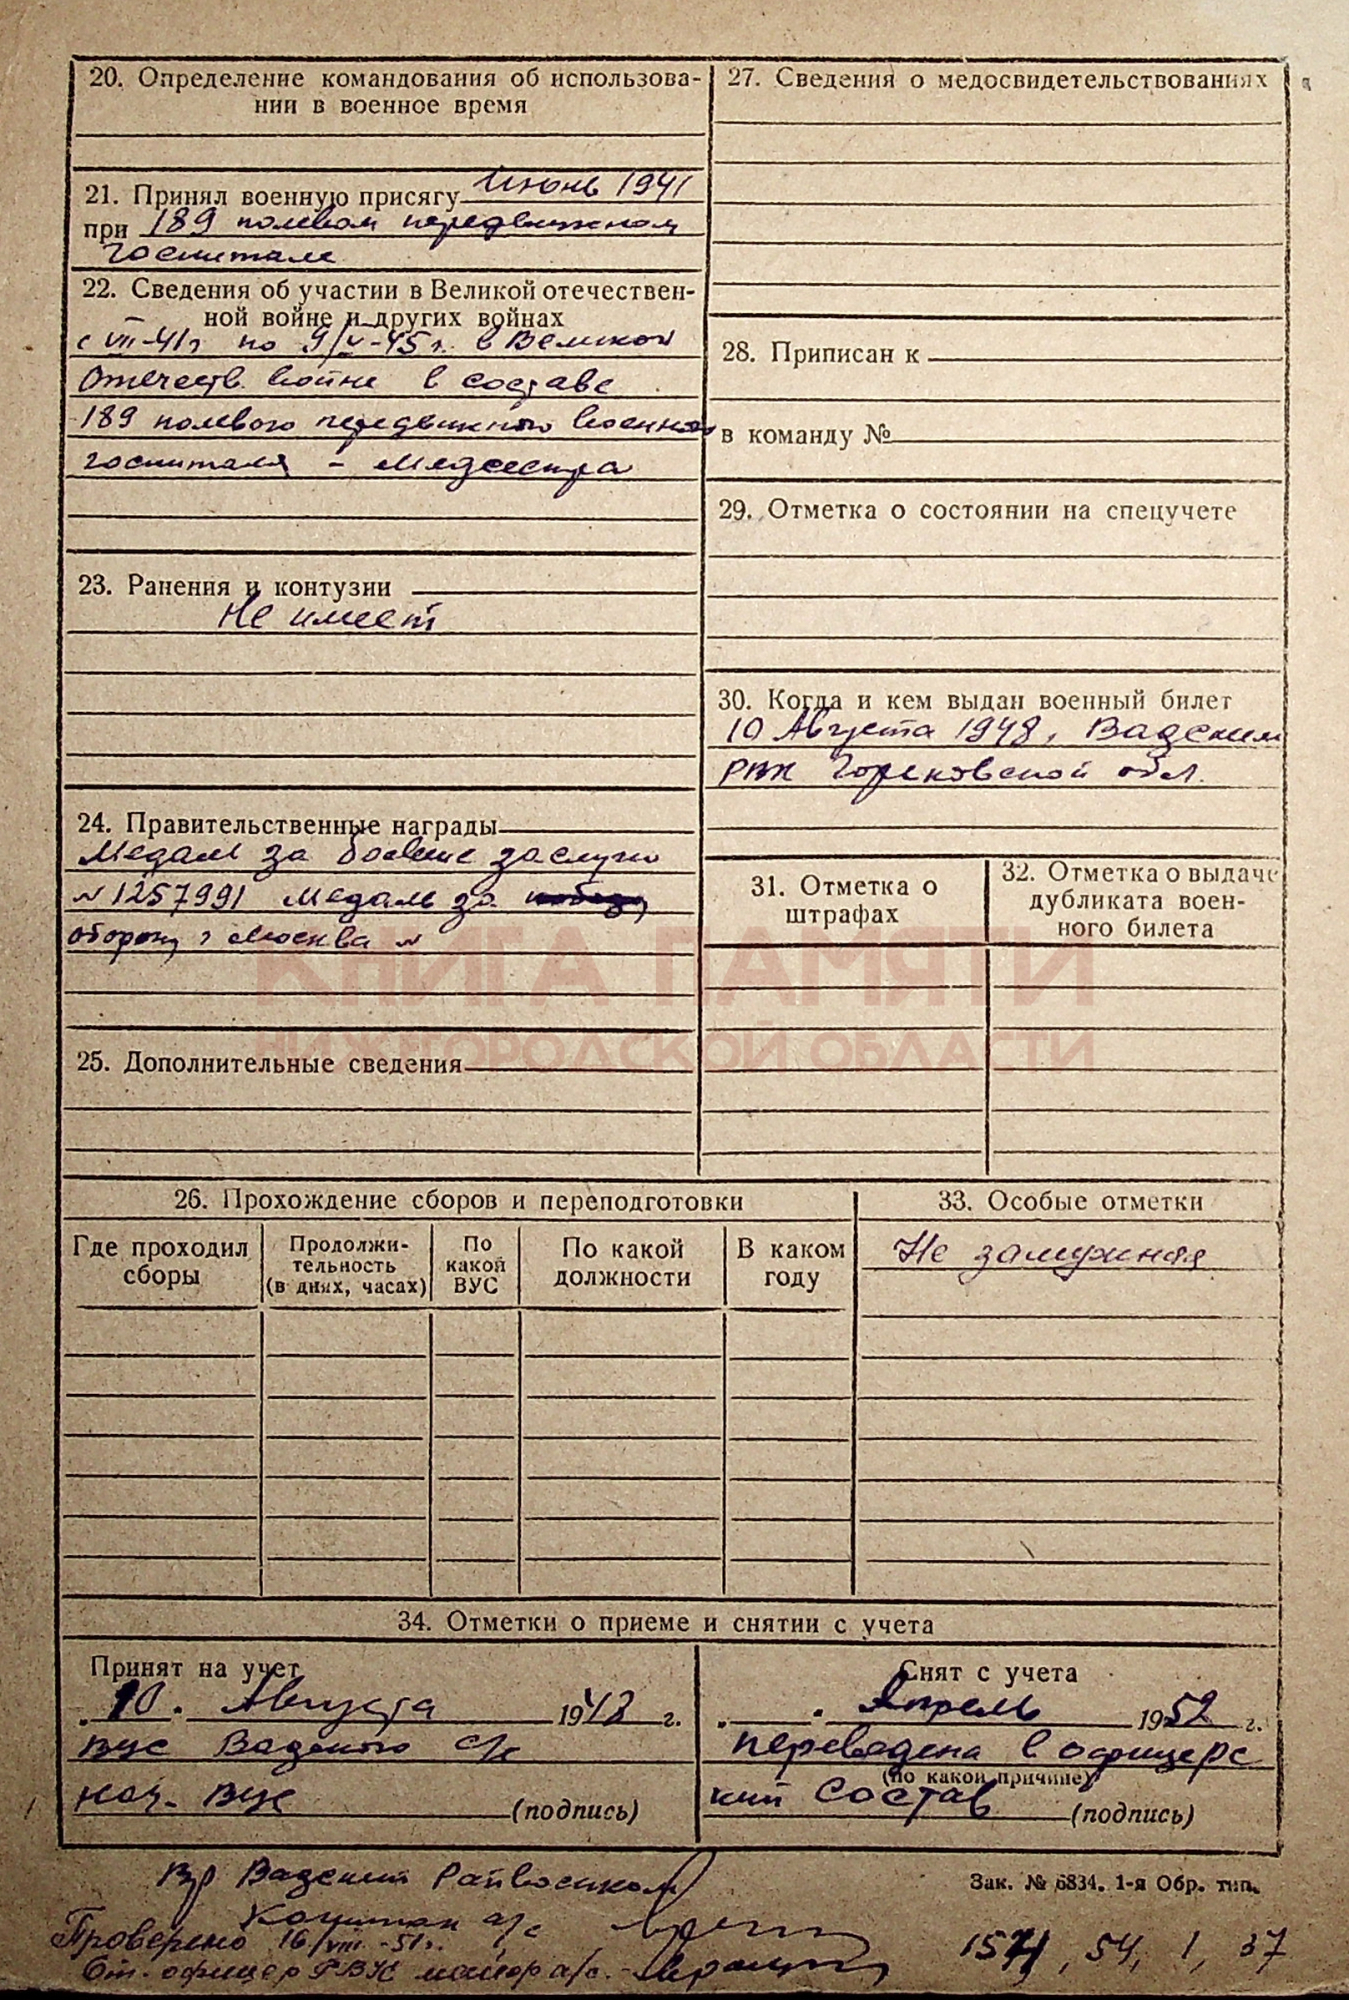 20. Определение командования об использова-
нии в военное время
21. Принял военную присягу Июнь 1941
при 189 полевом передвижном
госпитале
22. Сведения об участии в Великой отечествен-
ной войне и других войнах
с VII-41г по 9/V-45г. в Великой
Отечеств. войне в составе
189 полевого передвижного военного
госпиталя - Медсестра
23. Ранения и контузии
Не имеет
24. Правительственные награды
Медаль за боевые заслуги
№ 1257991 Медаль за победу
оборону г Москва №
25. Дополнительные сведения
27. Сведения о медосвидетельствованиях
28. Приписан к
в команду №
29. Отметка о состоянии на спецучете
30. Когда и кем выдан военный билет
10 Августа 1948, Вадским
РВК Горьковской обл.
31. Отметка о
штрафах
32. Отметка о выдаче
дубликата воен-
ного билета
КНИГА ПАМЯТИ
НИЖЕГОРОДСКОЙ ОБЛАСТИ
26. Прохождение сборов и переподготовки
Где проходил
сборы
Продолжи-
тельность
(в днях, часах)
По
какой
ВУС
По какой
должности
В каком
году
33. Особые отметки
Не замужняя
34. Отметки о приеме и снятии с учета
Принят на учет
10. Августа 1948 г.
ВУС Вадского с/с
нач. ВУС (подпись)
Снят с учета
Апрель 1952 г.
переведена в офицерс
(по какой причине)
кий состав (подпись)
Вр Вадский Райвоенком
Капитан а/с
Проверено 16/VIII-51г.
Ст. офицер РВК майор а/с.
Зак. № 6834. 1-я Обр. тип.
54, 1, 37